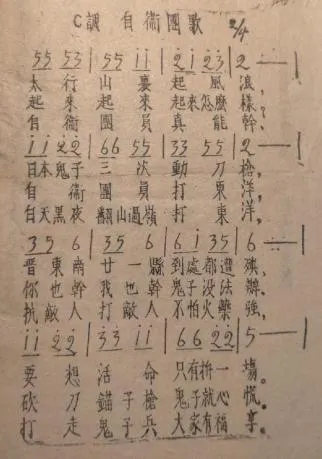 C調 自衛團歌 2/4
55 53 | 55 i i | 2 i 23 | 2 — |
太行山裏起風浪，
起來起來起來怎麼樣，
自衛團員真能幹，
i i 22 | 66 55 | 33 55 | 2 — |
日本鬼子三次動刀槍，
自衛團員打東洋，
白天黑夜翻山過嶺打東洋，
35 6 | 35 6 | 6 i 35 | 6 — |
晋東南廿一縣到處都遭殃，
你也幹我也幹鬼子没法辦，
抗敵人打敵人不怕火藥強，
i i 22 | 33 i i | 66 22 | 5 — |
要想活命只有拚一場。
砍刀錨子槍鬼子就心慌。
打走鬼子兵大家有福享。